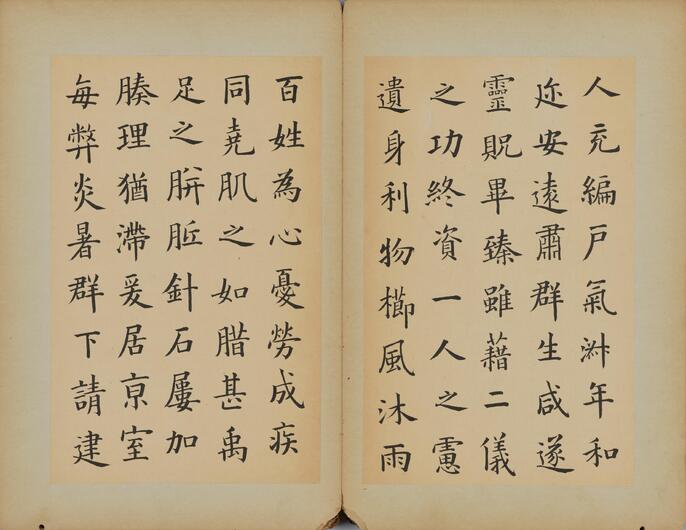 人充編戶氣淋年和
迩安遠肅群生咸遂
靈貺畢臻雖藉二儀
之功終資一人之慮
遺身利物櫛風沐雨
百姓為心憂勞成疾
同堯肌之如腊甚禹
足之胼胝針石屢加
腠理猶滯爰居京室
每弊炎暑群下請建